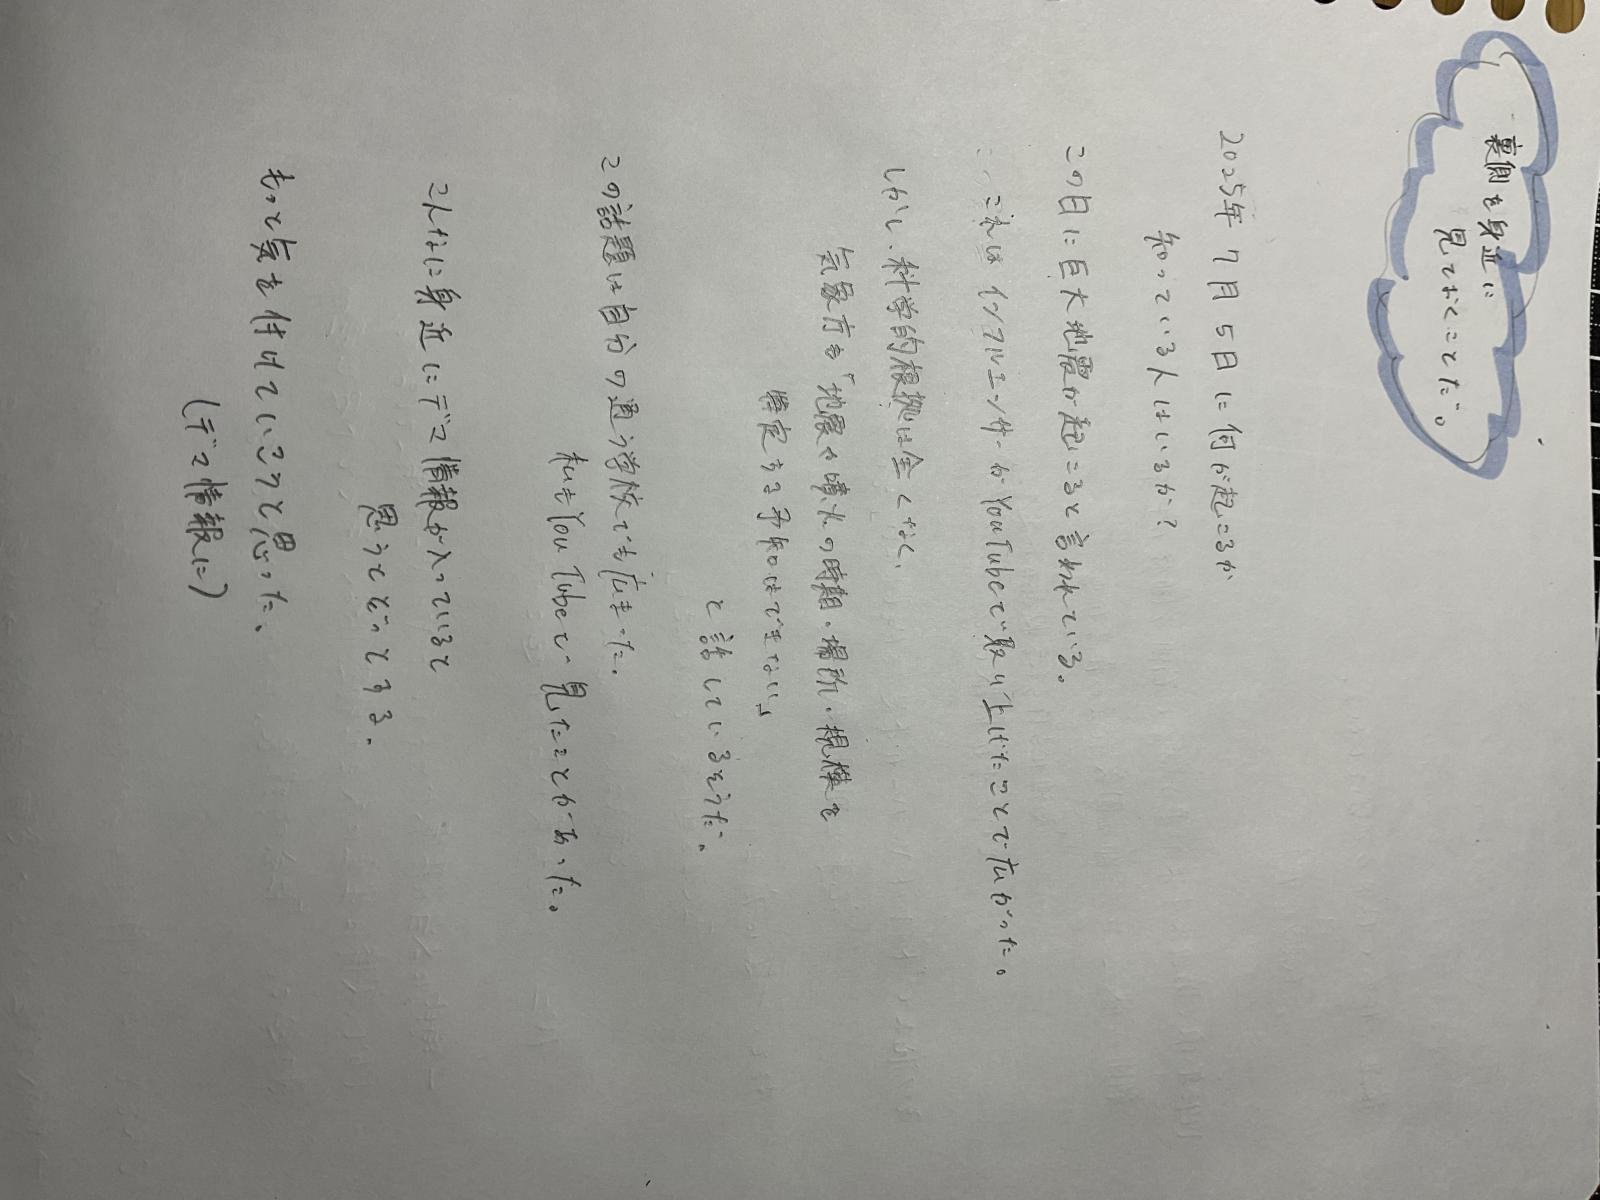 裏側を身近に
見ておくことだ。
2025年 7月 5日に何が起こるか
知っている人はいるか?
この日に巨大地震が起こると言われている。
これは インフルエンサーが YouTubeで取り上げたことで広がった。
しかし、科学的根拠は全くなく、
気象庁も「地震や噴火の時期・場所・規模を
特定する予知はできない」
と話しているそうだ。
この話題は自分の通う学校でも広まった。
私もYouTubeで見たことがあった。
こんなに身近にデマ情報が入っていると
思うとぞっとする。
もっと気を付けていこうと思った。
(デマ情報に)